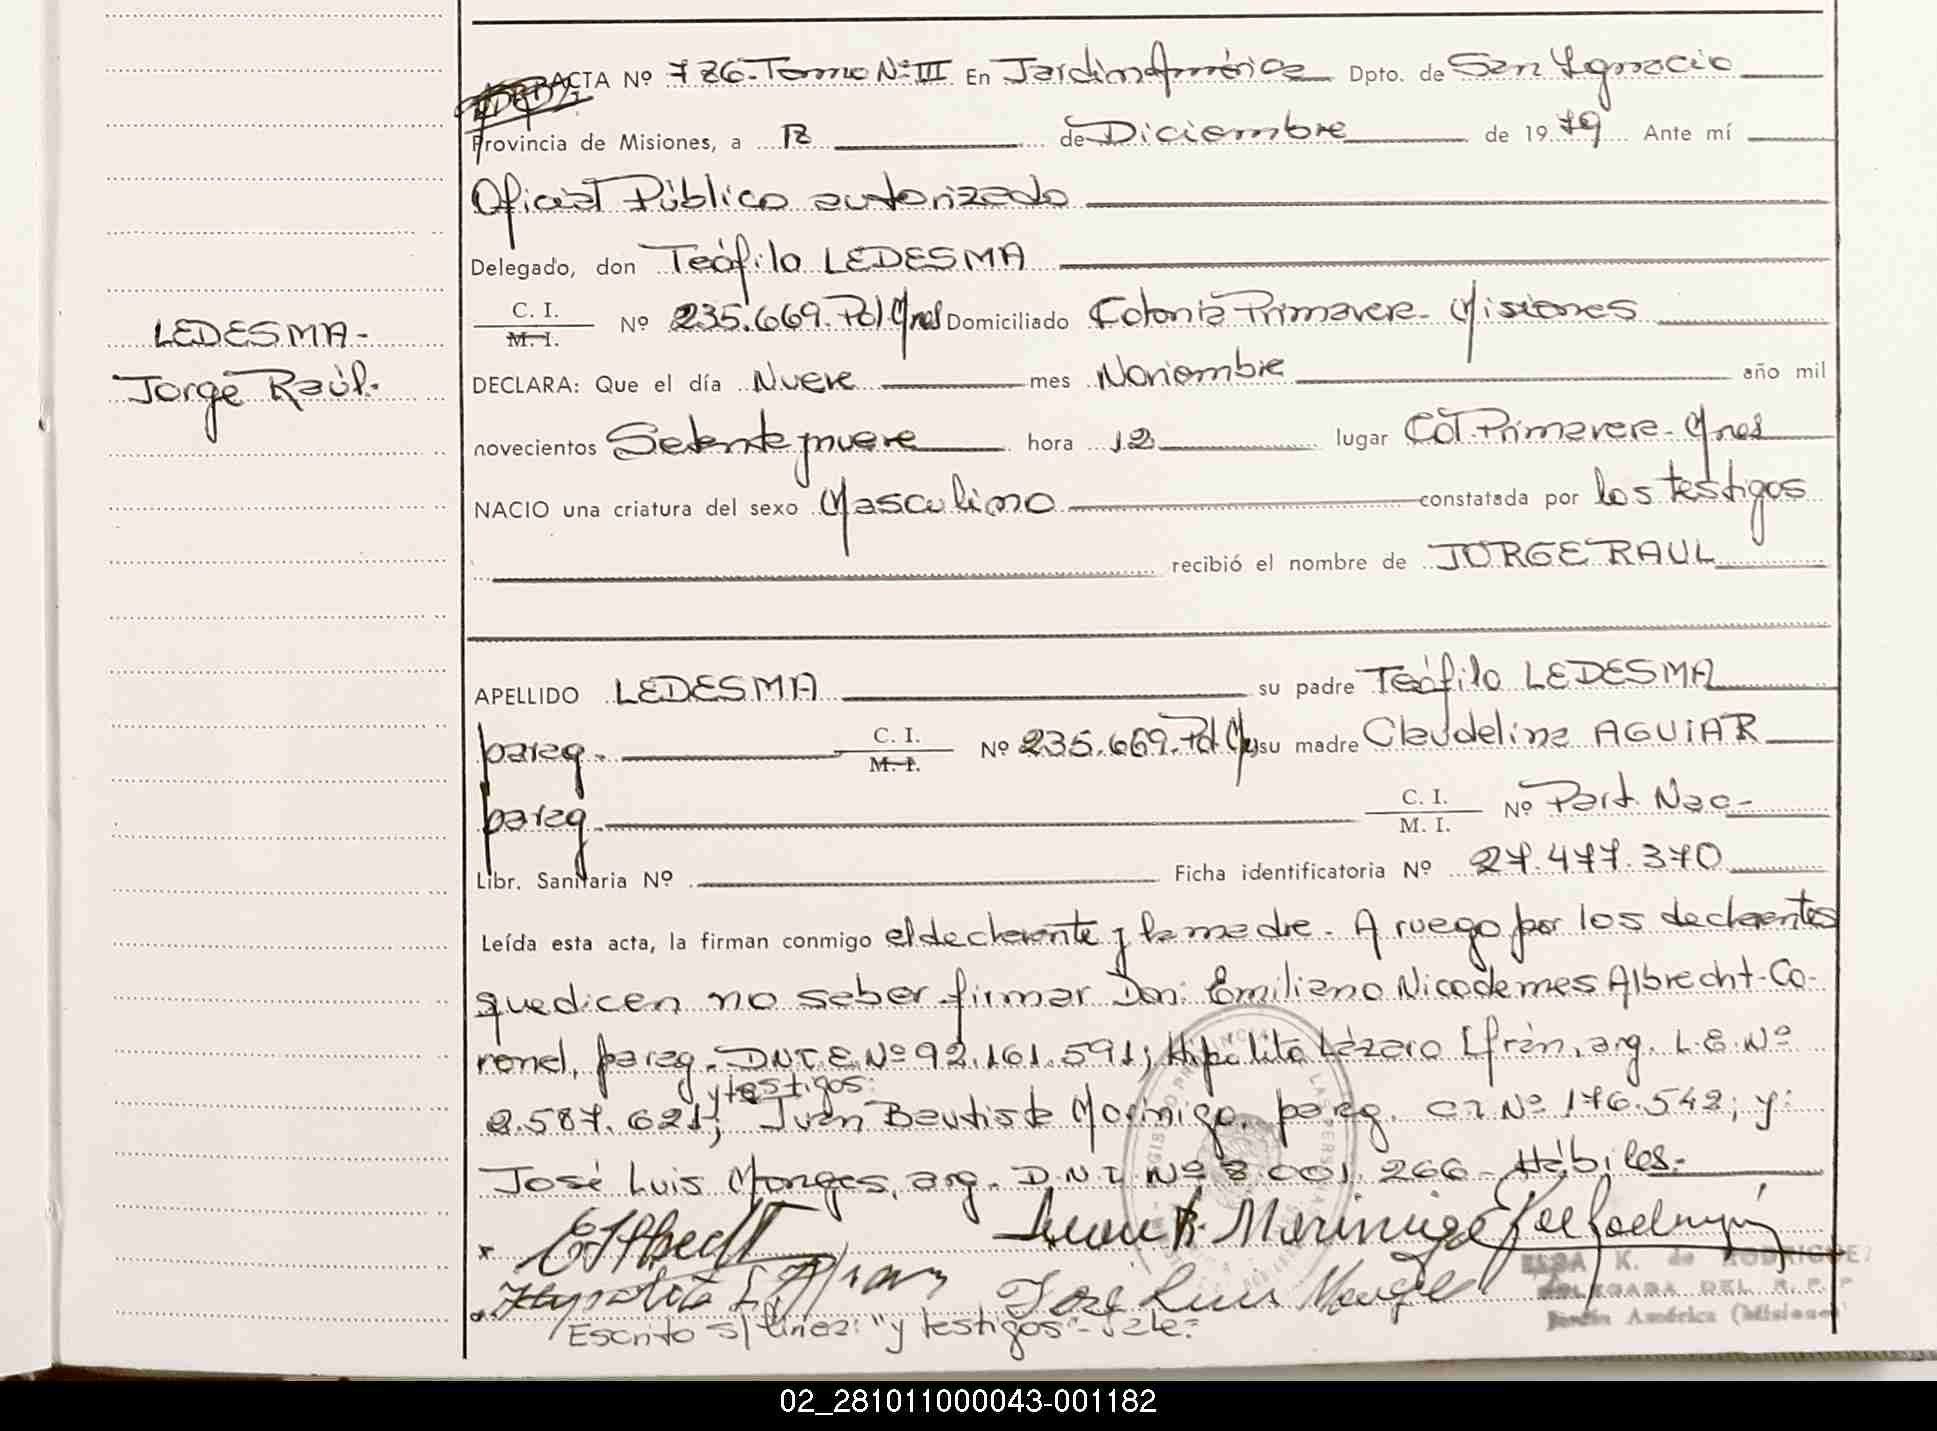 ACTA Nº 786-Tomo Nº III En Jardin América Dpto. de San Ygnacio
Provincia de Misiones, a 12 de Diciembre de 1979 Ante mí
Oficial Público autorizado
Delegado, don Teófilo LEDESMA
C. I.
M. I. Nº 235.669. Pol Mnes Domiciliado Colonia Primavera- Misiones
LEDESMA-
Jorge Raúl.
DECLARA: Que el día Nueve mes Noviembre año mil
novecientos Setenta y nueve hora 12 lugar Col. Primavera- Mnes
NACIO una criatura del sexo Masculino constatada por los testigos
recibió el nombre de JORGE RAUL
APELLIDO LEDESMA su padre Teófilo LEDESMA
parag. C. I.
M. I. Nº 235.669. Pol su madre Claudelina AGUIAR
parag C. I.
M. I. Nº Part. Nac-
Libr. Sanitaria Nº Ficha identificatoria Nº 27.477.370
Leída esta acta, la firman conmigo el declarante y la madre. A ruego por los declarantes
que dicen no saber firmar Don: Emiliano Nicodemes Albrecht-Co-
ronel, parag. D.N.I.E. Nº 92.161.591; Hipolito Lázaro Ifrán, arg. L.E. Nº
y testigos:
2.587.621; Juan Bautista Morinigo, parag. CI Nº 176.542; y:
José Luis Monges, arg. D.N.I. Nº 8.001.266- Hábiles.-
Juan B. Morinigo
José Luis Monge
ELSA K. de RODRIGUEZ
DELEGADA DEL R. P. P
Jardín América (Misiones)
Escrito s/ línea: "y testigos"- Vale:
02_281011000043-001182